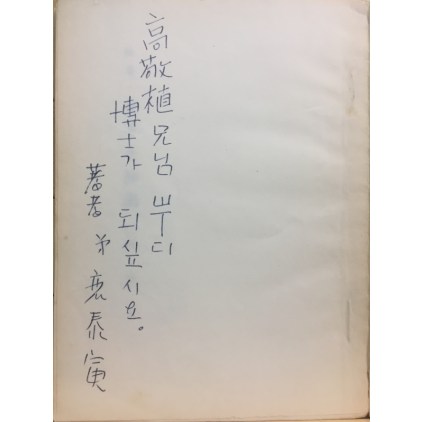 高敬植兄님 부디
博士가 되싶시요。
著者 弟 泰寅